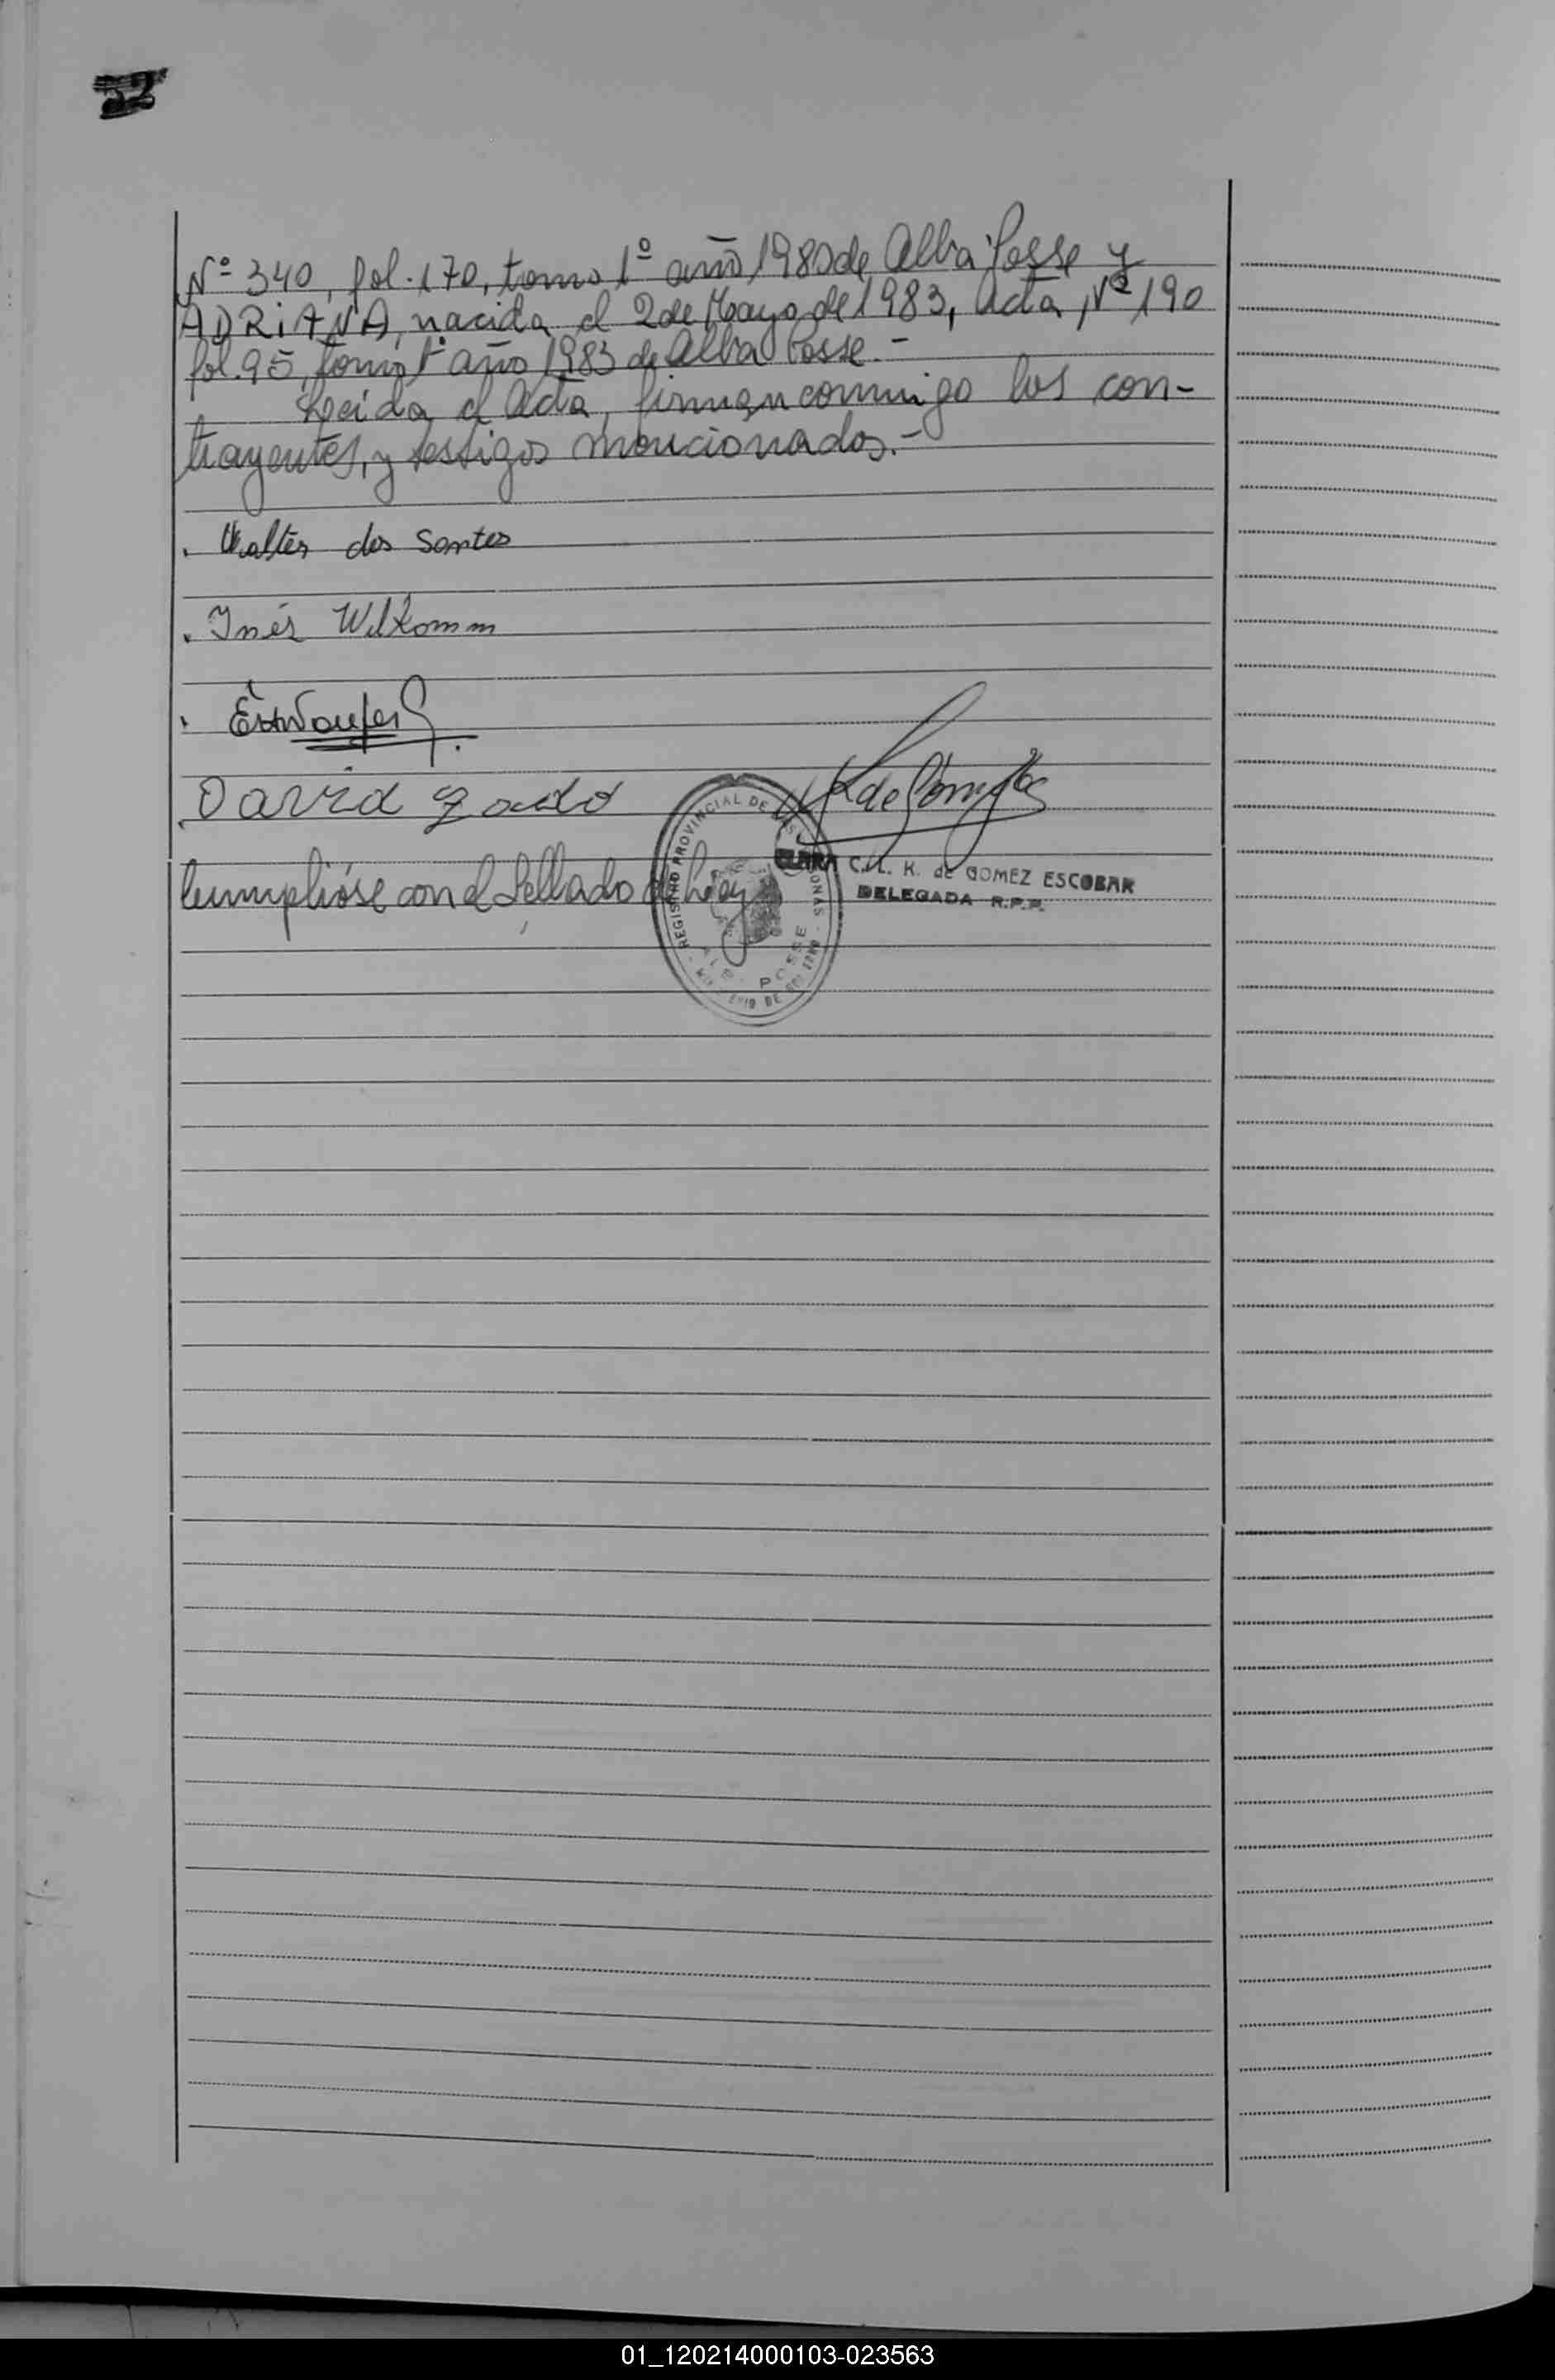 52
Nº 340, fol. 170, tomo 1º año 1980 de Alba Posse y
ADRiANA, nacida el 2 de Mayo de 1983, Acta Nº 190
fol. 95, tomo 1º año 1983 de Alba Posse.-
Leida el Acta, firman conmigo los con-
trayentes, y testigos mencionados.-
. Walter dos Santos
. Inés Wilkomm
David
Cumplióse con el Sellado de Ley
REGISTRO PROVINCIAL DE LAS PERSONAS
ALBA POSSE
CLARA C. L. K. de GOMEZ ESCOBAR
DELEGADA R.P.P.
01_120214000103-023563